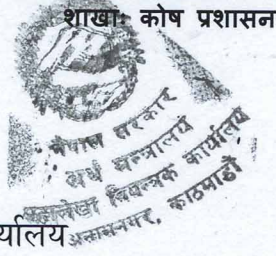 शाखाः कोष प्रशासन
नेपाल सरकार
अर्थ मन्त्रालय
महालेखा नियन्त्रक कार्यालय
अनामनगर, काठमाडौं
र्यालय